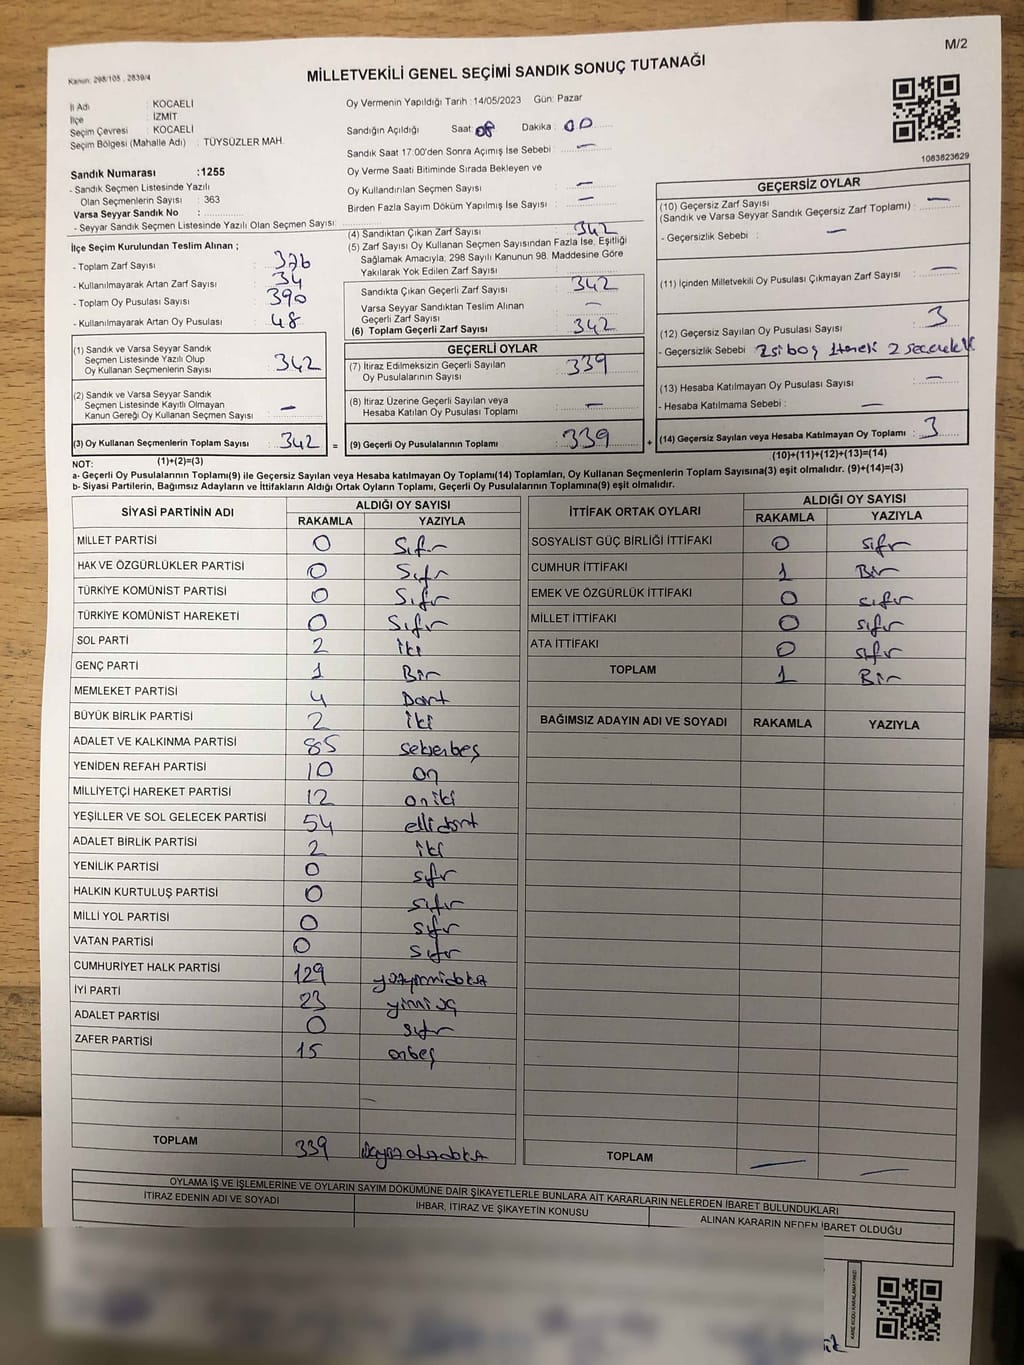 M/2
Kanun: 298/105 , 2839/4
MİLLETVEKİLİ GENEL SEÇİMİ SANDIK SONUÇ TUTANAĞI
İl Adı : KOCAELİ
İlçe : İZMİT
Seçim Çevresi : KOCAELİ
Seçim Bölgesi (Mahalle Adı) : TÜYSÜZLER MAH.
Sandık Numarası :1255
- Sandık Seçmen Listesinde Yazılı
Olan Seçmenlerin Sayısı : 363
Varsa Seyyar Sandık No :
- Seyyar Sandık Seçmen Listesinde Yazılı Olan Seçmen Sayısı
İlçe Seçim Kurulundan Teslim Alınan ;
- Toplam Zarf Sayısı : 376
- Kullanılmayarak Artan Zarf Sayısı : 34
- Toplam Oy Pusulası Sayısı : 390
- Kullanılmayarak Artan Oy Pusulası : 48
(1) Sandık ve Varsa Seyyar Sandık
Seçmen Listesinde Yazılı Olup
Oy Kullanan Seçmenlerin Sayısı : 342
(2) Sandık ve Varsa Seyyar Sandık
Seçmen Listesinde Kayıtlı Olmayan
Kanun Gereği Oy Kullanan Seçmen Sayısı : -
(3) Oy Kullanan Seçmenlerin Toplam Sayısı : 342 =
Oy Vermenin Yapıldığı Tarih :14/05/2023 Gün: Pazar
Sandığın Açıldığı Saat: 08 Dakika : 00
Sandık Saat 17:00'den Sonra Açımış İse Sebebi : -
Oy Verme Saati Bitiminde Sırada Bekleyen ve
Oy Kullandırılan Seçmen Sayısı : -
Birden Fazla Sayım Döküm Yapılmış İse Sayısı : -
(4) Sandıktan Çıkan Zarf Sayısı : 342
(5) Zarf Sayısı Oy Kullanan Seçmen Sayısından Fazla İse, Eşitliği
Sağlamak Amacıyla; 298 Sayılı Kanunun 98. Maddesine Göre
Yakılarak Yok Edilen Zarf Sayısı :
Sandıkta Çıkan Geçerli Zarf Sayısı : 342
Varsa Seyyar Sandıktan Teslim Alınan
Geçerli Zarf Sayısı : -
(6) Toplam Geçerli Zarf Sayısı : 342
GEÇERLİ OYLAR
(7) İtiraz Edilmeksizin Geçerli Sayılan
Oy Pusulalarının Sayısı : 339
(8) İtiraz Üzerine Geçerli Sayılan veya
Hesaba Katılan Oy Pusulası Toplamı : -
(9) Geçerli Oy Pusulalarının Toplamı : 339 +
1083823629
GEÇERSİZ OYLAR
(10) Geçersiz Zarf Sayısı : -
(Sandık ve Varsa Seyyar Sandık Geçersiz Zarf Toplamı)
- Geçersizlik Sebebi : -
(11) İçinden Milletvekili Oy Pusulası Çıkmayan Zarf Sayısı : -
(12) Geçersiz Sayılan Oy Pusulası Sayısı : 3
- Geçersizlik Sebebi
(13) Hesaba Katılmayan Oy Pusulası Sayısı : -
- Hesaba Katılmama Sebebi : -
(14) Geçersiz Sayılan veya Hesaba Katılmayan Oy Toplamı : 3
NOT: (1)+(2)=(3) (10)+(11)+(12)+(13)=(14)
a- Geçerli Oy Pusulalarının Toplamı(9) ile Geçersiz Sayılan veya Hesaba katılmayan Oy Toplamı(14) Toplamları, Oy Kullanan Seçmenlerin Toplam Sayısına(3) eşit olmalıdır. (9)+(14)=(3)
b- Siyasi Partilerin, Bağımsız Adayların ve İttifakların Aldığı Ortak Oyların Toplamı, Geçerli Oy Pusulalarının Toplamına(9) eşit olmalıdır.
SİYASİ PARTİNİN ADI ALDIĞI OY SAYISI
RAKAMLA YAZIYLA
MİLLET PARTİSİ 0 Sıfır
HAK VE ÖZGÜRLÜKLER PARTİSİ 0 Sıfır
TÜRKİYE KOMÜNİST PARTİSİ 0 Sıfır
TÜRKİYE KOMÜNİST HAREKETİ 0 Sıfır
SOL PARTİ 2 iki
GENÇ PARTİ 1 Bir
MEMLEKET PARTİSİ 4 Dört
BÜYÜK BİRLİK PARTİSİ 2 iki
ADALET VE KALKINMA PARTİSİ 85 seksenbeş
YENİDEN REFAH PARTİSİ 10 on
MİLLİYETÇİ HAREKET PARTİSİ 12 oniki
YEŞİLLER VE SOL GELECEK PARTİSİ 54 ellidört
ADALET BİRLİK PARTİSİ 2 iki
YENİLİK PARTİSİ 0 sıfır
HALKIN KURTULUŞ PARTİSİ 0 sıfır
MİLLİ YOL PARTİSİ 0 sıfır
VATAN PARTİSİ 0 sıfır
CUMHURİYET HALK PARTİSİ 129 yüzyirmidokuz
İYİ PARTİ 23 yirmiüç
ADALET PARTİSİ 0 sıfır
ZAFER PARTİSİ 15 onbeş
TOPLAM 339 üçyüzotuzdokuz
İTTİFAK ORTAK OYLARI ALDIĞI OY SAYISI
RAKAMLA YAZIYLA
SOSYALİST GÜÇ BİRLİĞİ İTTİFAKI 0 sıfır
CUMHUR İTTİFAKI 1 Bir
EMEK VE ÖZGÜRLÜK İTTİFAKI 0 sıfır
MİLLET İTTİFAKI 0 sıfır
ATA İTTİFAKI 0 sıfır
TOPLAM 1 Bir
BAĞIMSIZ ADAYIN ADI VE SOYADI RAKAMLA YAZIYLA
TOPLAM - -
OYLAMA İŞ VE İŞLEMLERİNE VE OYLARIN SAYIM DÖKÜMÜNE DAİR ŞİKAYETLERLE BUNLARA AİT KARARLARIN NELERDEN İBARET BULUNDUKLARI
İTİRAZ EDENİN ADI VE SOYADI İHBAR, İTİRAZ VE ŞİKAYETİN KONUSU ALINAN KARARIN NEDEN İBARET OLDUĞU
KARE KODU KARALAMAYINIZ!